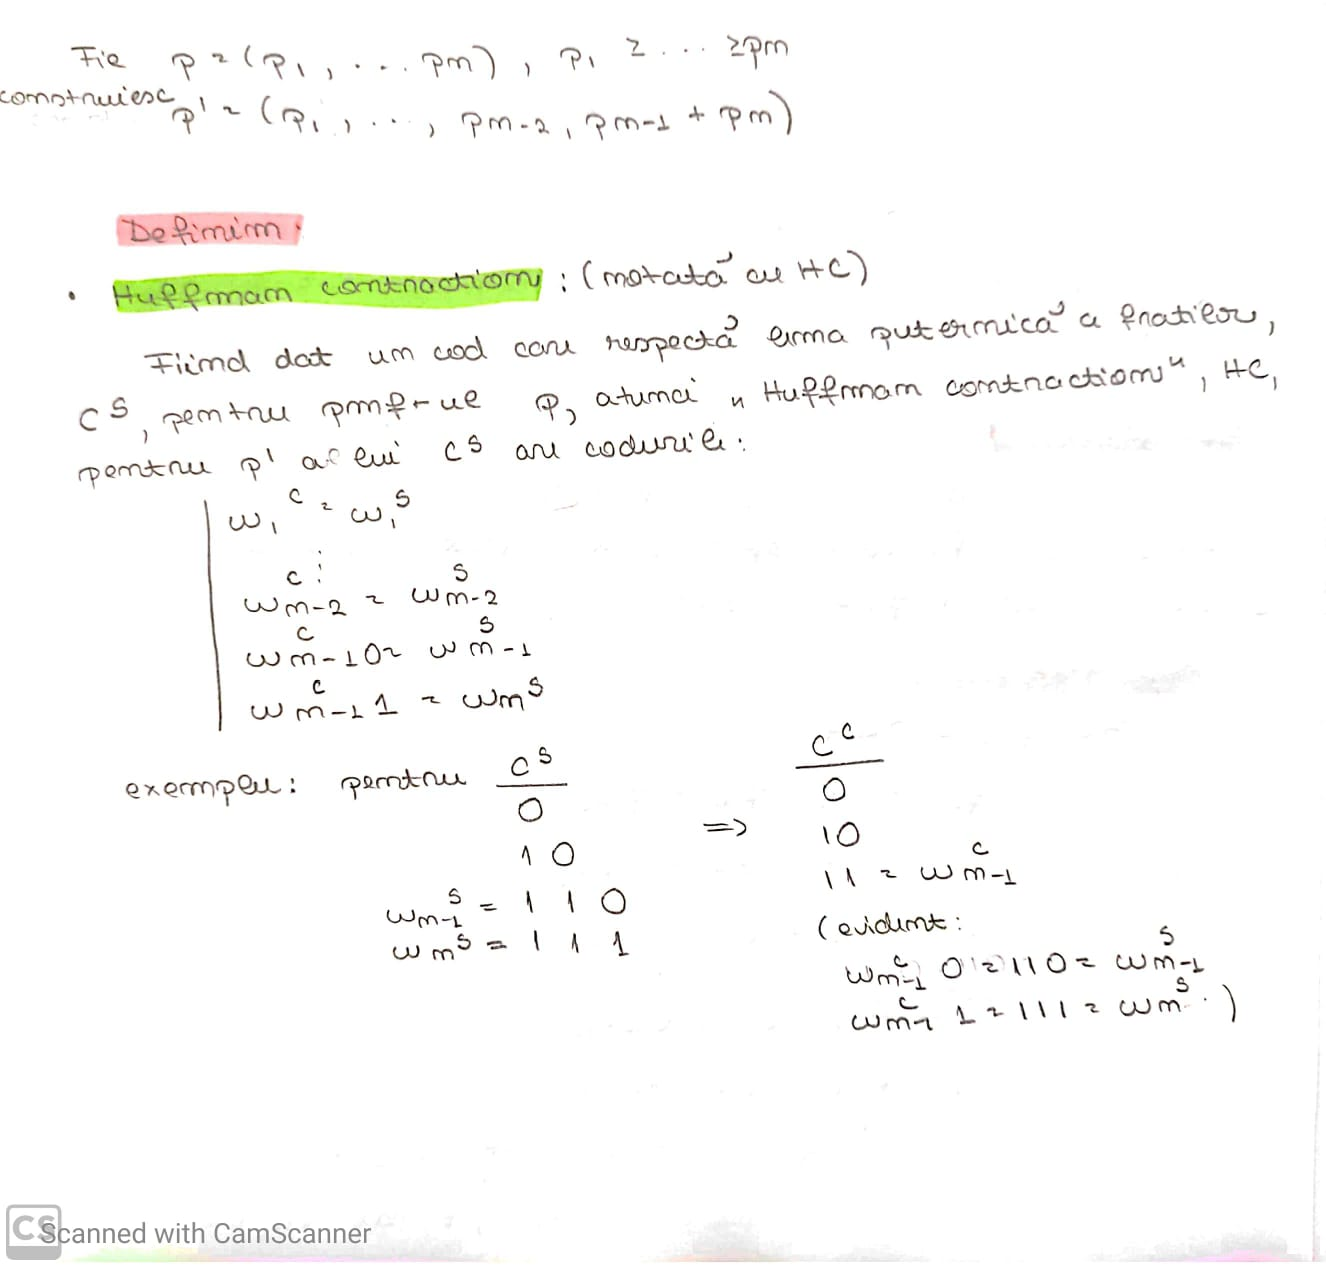 Fie p = (p1, ... pm), p1 ≥ ... ≥ pm
construiesc p' = (p1, ..., pm-2, pm-1 + pm)
Definim:
• Huffman contraction: (notată cu HC)
Fiind dat un cod care respectă lema puternică a fraților,
C^S, pentru pmf-ul p, atunci „Huffman contraction", HC,
pentru p' al lui C^S are codurile:
w1^C = w1^S
⋮
wm-2^C = wm-2^S
wm-1^C 0 = wm-1^S
wm-1^C 1 = wm^S
exemplu: pentru C^S => C^C
0 0
10 10
wm-1^S = 110 11 = wm-1^C
wm^S = 111 (evident:
wm-1^C 0 = 110 = wm-1^S
wm-1^C 1 = 111 = wm^S.)
CS Scanned with CamScanner